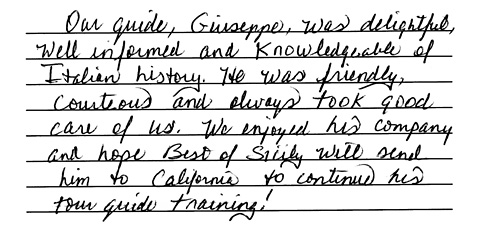 Our guide, Giuseppe, was delightful,
well informed and knowledgeable of
Italian history. He was friendly,
courteous and always took good
care of us. We enjoyed his company
and hope Best of Sicily will send
him to California to continue his
tour guide training!